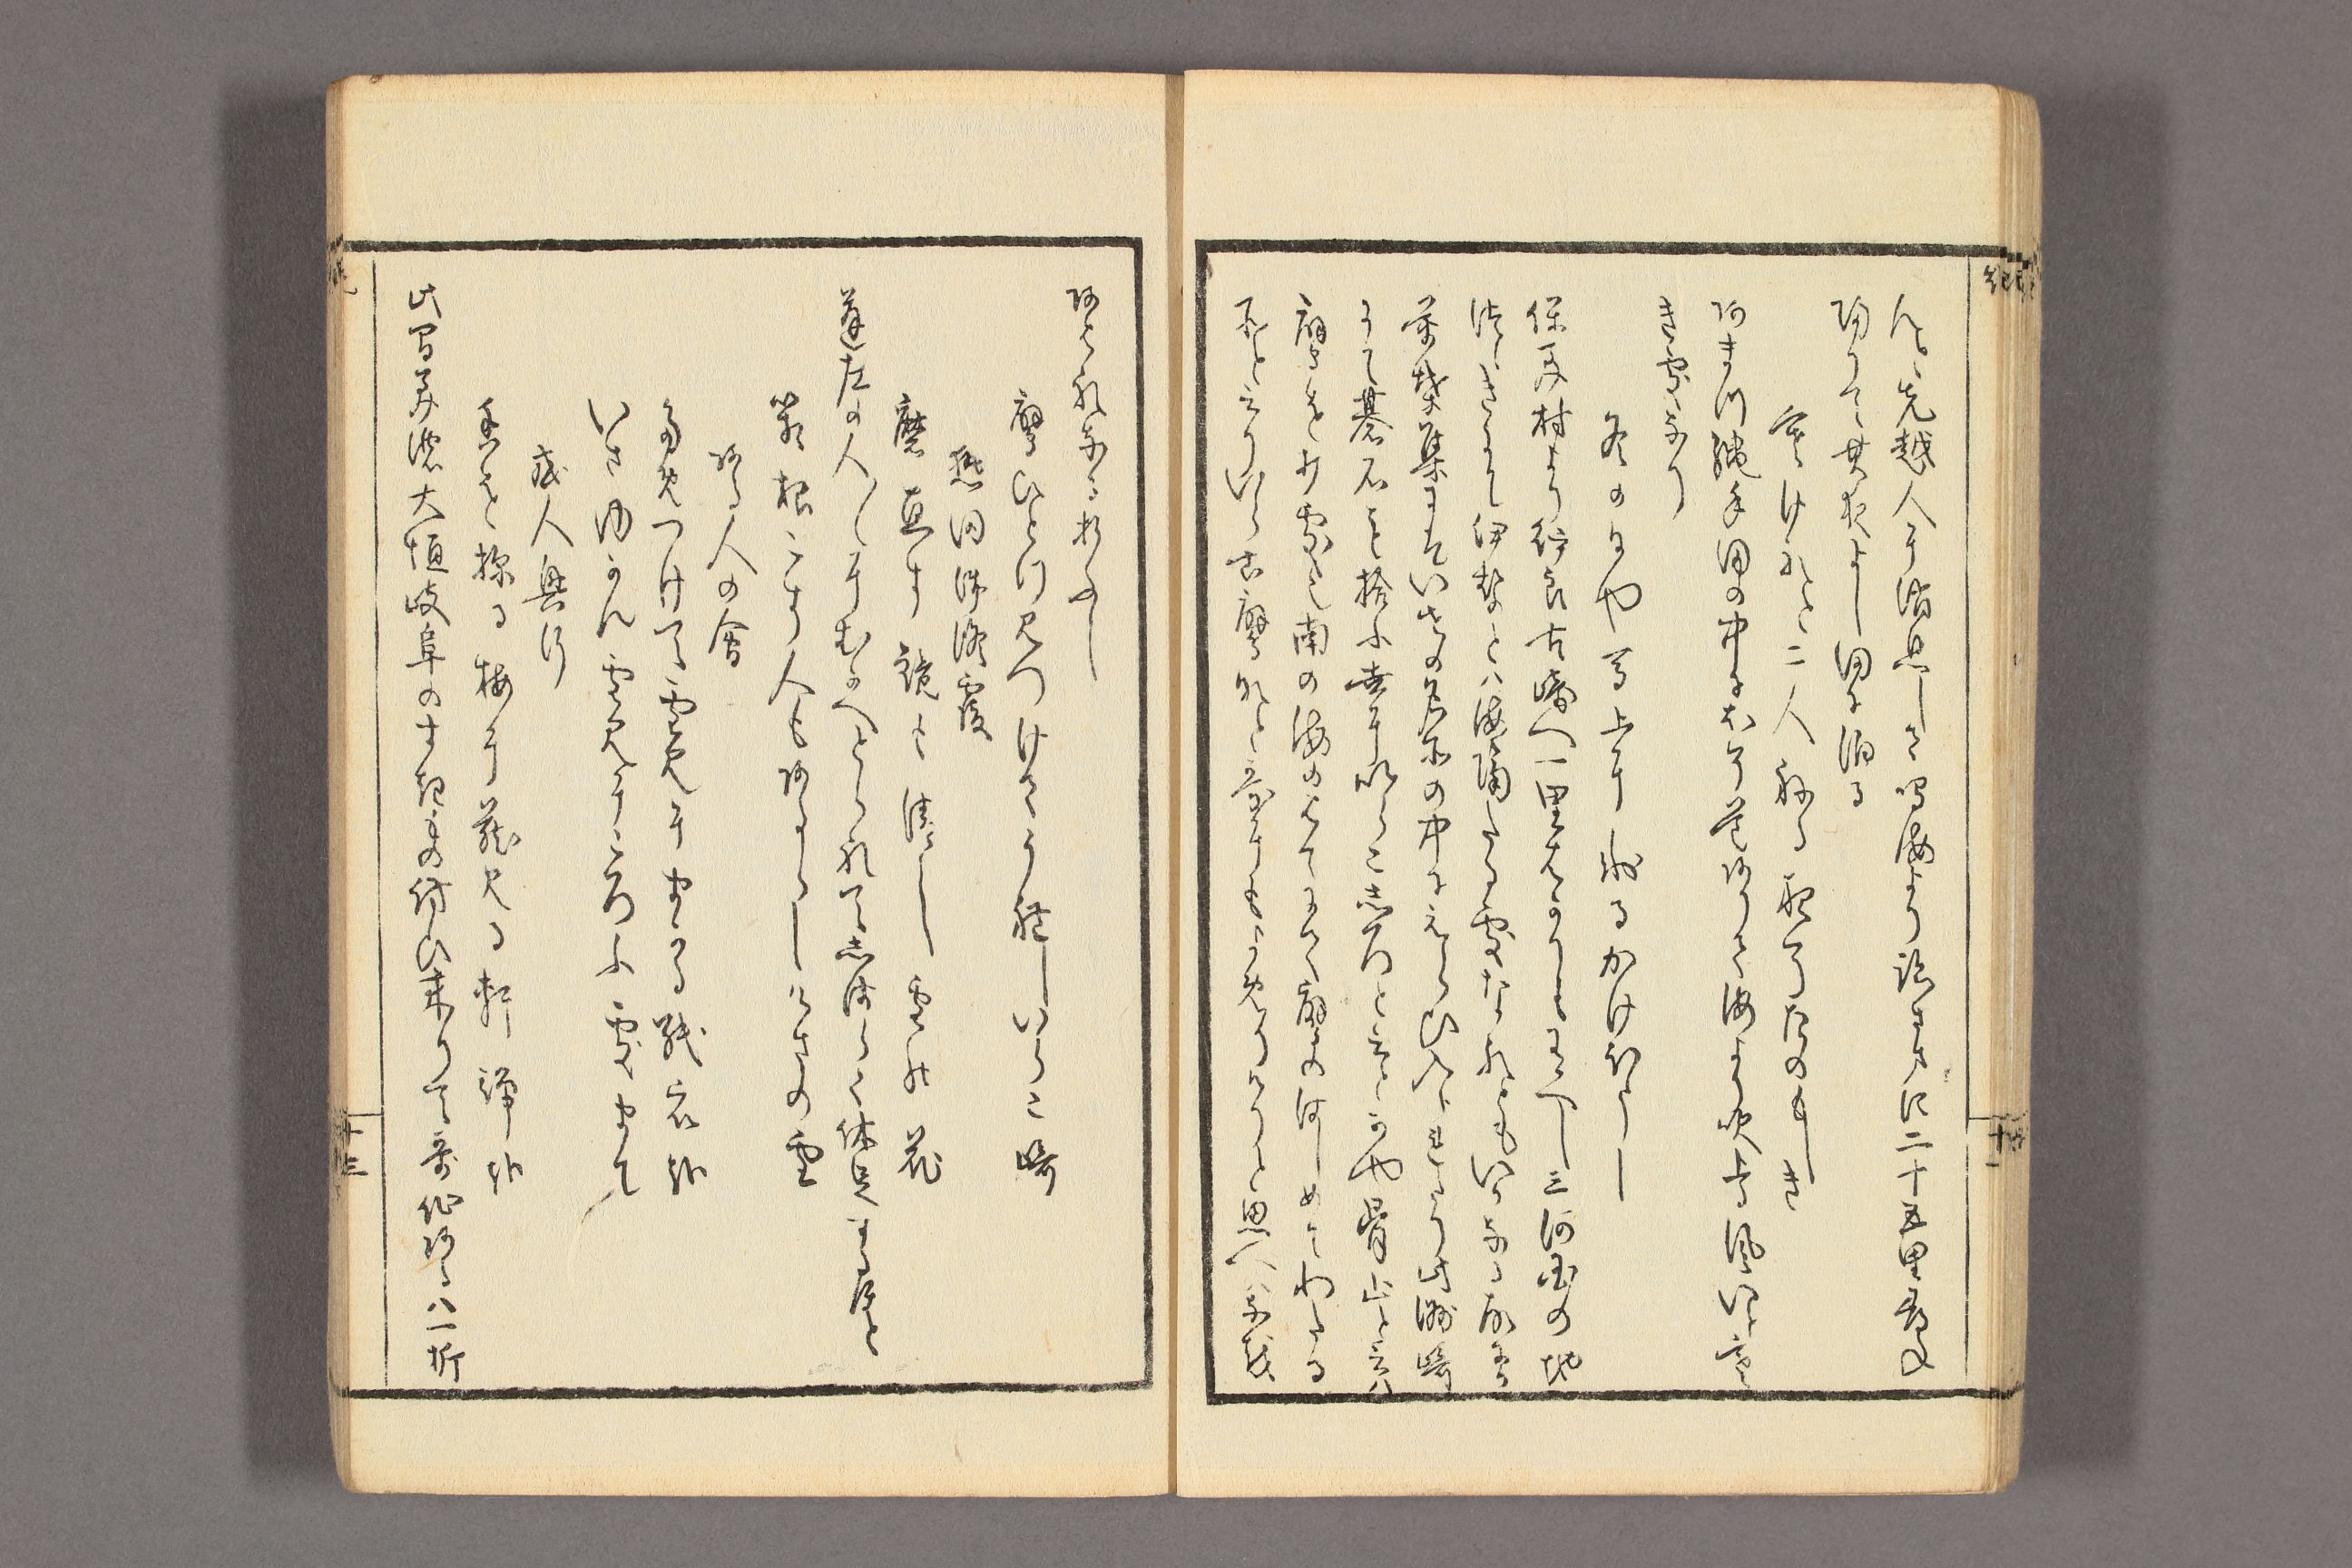 んと先越人に消息して鳴海より跡さまに二十五里尋ね
帰りて其夜よし田に泊る
寒けれと二人ねる夜そたのもしき
あまつ縄手田の中に細道ありて海より吹上る風いと寒
き処なり
冬の日や馬上に氷るかけほうし
保美村より伊良古崎へ一里はかりも有へし三河国の地
つゝきにて伊勢とは海隔たる処なれともいかなる故にか
万葉集には伊勢の名所の中にえらひ入られたり此洲崎
にて碁石を拾ふ世にいらこ白といふとかや骨山と云は
鷹を打処也南の海のはてにて鷹のはしめてわたる
所と云りいらこ鷹なと哥にもよめりけりと思へは猶
あはれなる折ふし
鷹ひとつ見つけてうれしいらこ崎
熱田御修覆
磨直す鏡も清し雪の花
蓬左の人々にむかへとられてしはらく休息する程と
箱根こす人もあるらしけさの雪
ある人の会
ためつけて雪見にまかる紙衣哉
いさゆかん雪見にころふ処まて
或人興行
香を探る梅に蔵見る軒端哉
此間美濃大垣岐阜のすきものとふらひ来りて哥仙あるは一折
十三